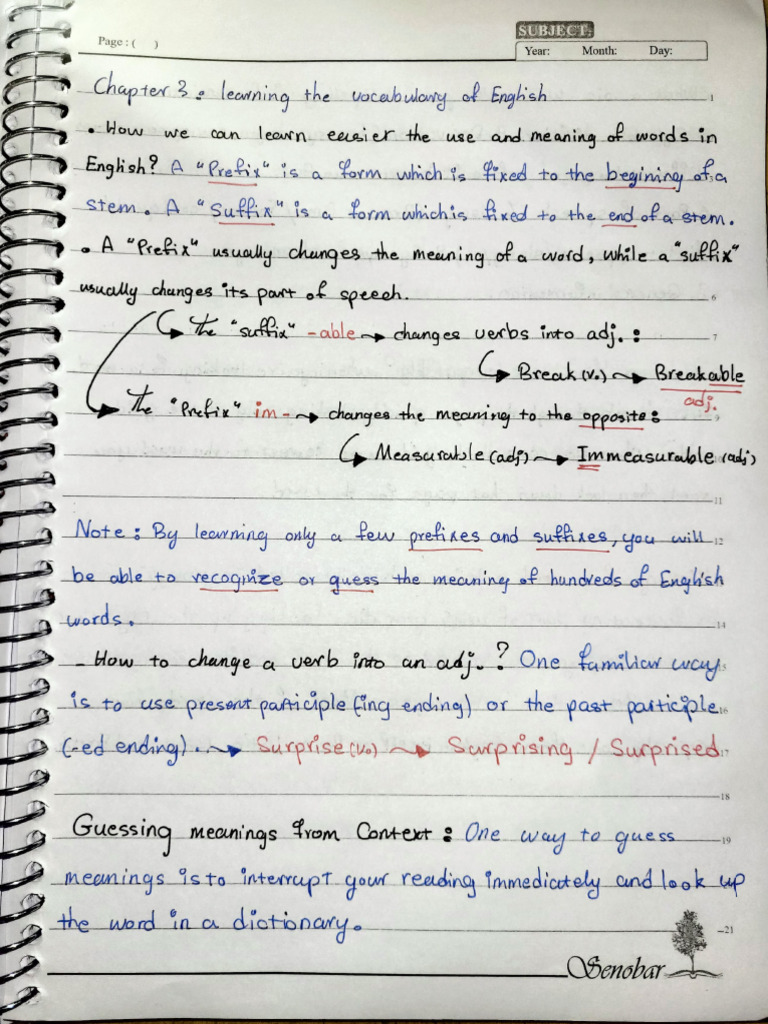 Page : (    )
SUBJECT:
Year:    Month:    Day:
Chapter 3 : learning the vocabulary of English
1
• How we can learn easier the use and meaning of words in
English? A "Prefix" is a form which is fixed to the begining of a
stem. A "Suffix" is a form which is fixed to the end of a stem.
• A "Prefix" usually changes the meaning of a word, while a "suffix"
usually changes its part of speech.
6
The "suffix" -able → changes verbs into adj. :
7
Break (v.) → Breakable
adj.
The "Prefix" im- → changes the meaning to the opposite :
9
Measurable (adj) → Immeasurable (adj)
11
Note : By learning only a few prefixes and suffixes, you will
12
be able to recognize or guess the meaning of hundreds of English
words.
14
- How to change a verb into an adj. ? One familiar way
15
is to use present participle (ing ending) or the past participle
16
(-ed ending). → Surprise (v.) → Surprising / Surprised
17
18
Guessing meanings from Context : One way to guess
19
meanings is to interrupt your reading immediately and look up
the word in a dictionary.
21
Senobar